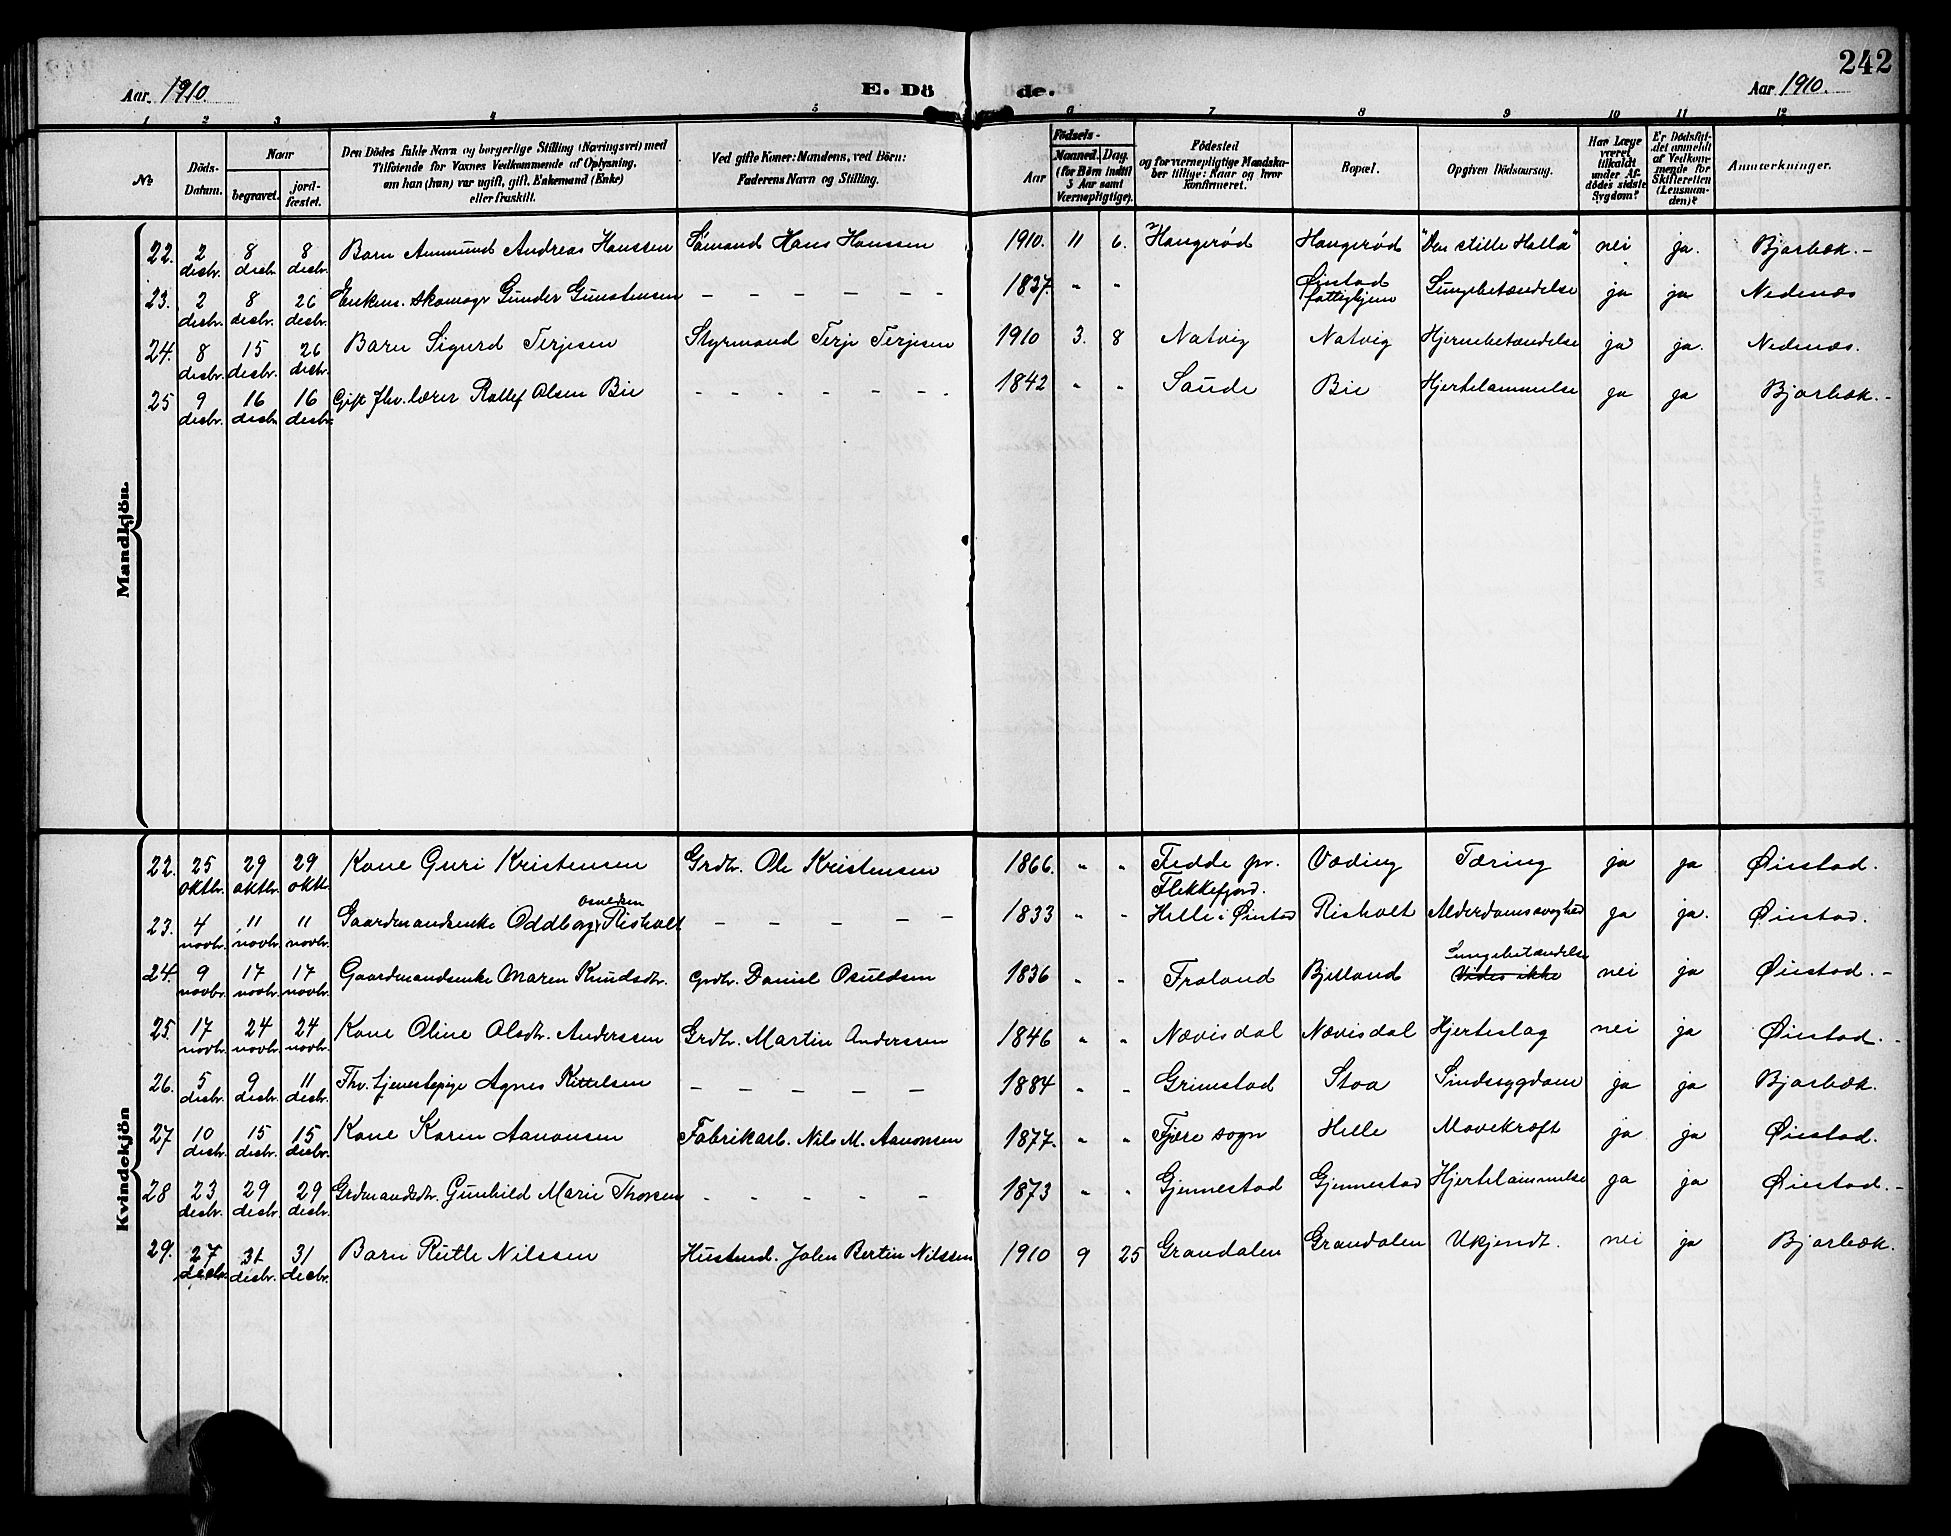 242
Aar 1910. E. Dö de. Aar 1910.
1 2 3 4 5 6 7 8 9 10 11 12
No
Döds-Datum.
Naar
begravet.
jord-fæstet.
Den Dödes fulde Navn og borgerlige Stilling (Næringsvei) med
Tilföiende for Voxnes Vedkommende af Oplysning,
om han (hun) var ugift, gift, Enkemand (Enke)
eller fraskilt.
Ved gifte Koner: Mandens, ved Börn:
Faderens Navn og Stilling.
Födsels-
Aar
Maaned. Dag.
(for Börn indtil
5 Aar samt
Værnepligtige).
Födested
og for værnepligtige Mandska-
ber tillige: Naar og hvor
konfirmeret.
Bopæl.
Opgiven Dödsaarsag.
Har Læge
været
tilkaldt
under Af-
dödes sidste
Sygdom?
Er Dödsfal-
det anmeldt
af Vedkom-
mende for
Skifteretten
(Lensman-
den)?
Anmærkninger.
Mandkjön.
22. 2 desbr. 8 desbr. 8 desbr. Barn Anmund Andreas Hanssen Sömand Hans Hanssen 1910. 11 6. Haugeröd Haugeröd "Den stille Hatla" nei ja. Bjorbæk.-
23. 2 desbr. 8 desbr. 26 desbr. Enkem. skomagr Gunder Gunstensen – – – – – – 1837. " " Öiestad fattighjem Lungebetændelse ja ja Nedenæs
24. 8 desbr. 15 desbr. 26 desbr. Barn Sigurd Terjesen Styrmand Terje Terjesen 1910 3. 8 Natvig Natvig Hjernebetændelse ja ja. Nedenæs.
25 9 desbr. 16 desbr. 16 desbr. Gift fhv. lærer Rollef Olsen Bie – – – – – – 1842 " " Saude Bie Hjertelammelse ja ja Bjorbæk.-
Kvindekjön
22. 25 oktbr. 29 oktbr. 29 oktbr. Kone Guri Kristensen Grdbr. Ole Kristensen 1866. " " Fedde pr. Flekkefjord. Væding Tæring ja ja Øiestad.
23. 4 novbr. 11 novbr. 11 novbr. Gaardmandsenke Oddborg Osuldsen Risholt – – – – – 1833 " " Helle i Øiestad Risholt Alderdomssvaghed ja ja. Øiestad.
24. 9 novbr. 17 novbr. 17 novbr. Gaardmandsenke Maren Knudsdtr. Grdbr. Daniel Osuldsen 1836 " " Froland Bjelland Lungebetændelse Vides ikke nei ja Øiestad.-
25. 17 novbr. 24 novbr. 24 novbr. Kone Oline Olsdtr. Anderssen Grdbr. Martin Anderssen 1846 " " Nævisdal Nævisdal Hjerteslag nei ja Øiestad.-
26. 5 desbr. 9 desbr. 11 desbr. Fhv. tjenestepige Agnes Kittelsen – – – – – 1884 " " Grimstad Stoa Sindssygdom ja ja Bjorbæk.
27 10 desbr. 15 desbr. 15 desbr. Kone Karen Aanonsen Fabrikarb. Nils M. Aanonsen 1877. " " Fjære sogn Helle Mavekræft ja ja Øiestad.
28 23 desbr. 29 desbr. 29 desbr. Grdmandsdtr. Gunhild Marie Thorsen – – – – – 1873 " " Gjennestad Gjennestad Hjertelammelse ja ja Øiestad.-
29. 27 desbr. 31 desbr. 31 desbr. Barn Ruth Nilssen Husmd. Johan Bertin Nilssen 1910 9 25 Grandalen Grandalen Ukjendt. nei ja Bjorbæk.